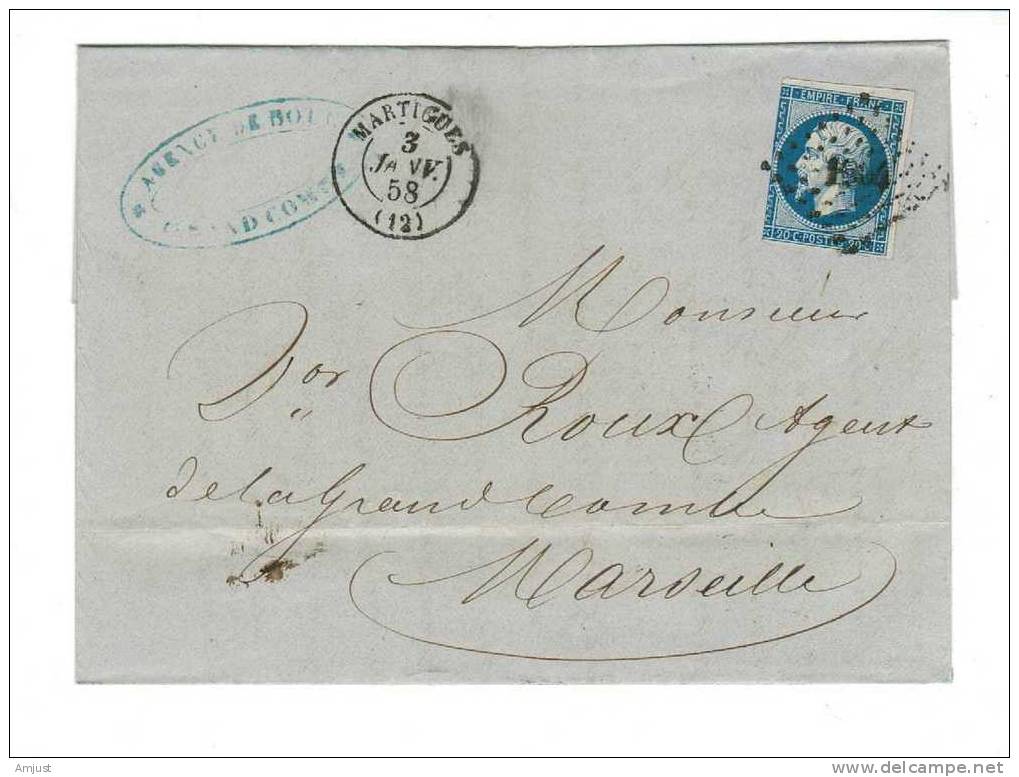 AGENCE DE BOUC
GRAND COMBE
MARTIGUES
3
JANV.
58
(12)
EMPIRE FRANC
20 C. POSTES 20 C.
Monsieur
Dor Roux Agent
de la Grand Combe
Marseille
Amjust
www.delcampe.net